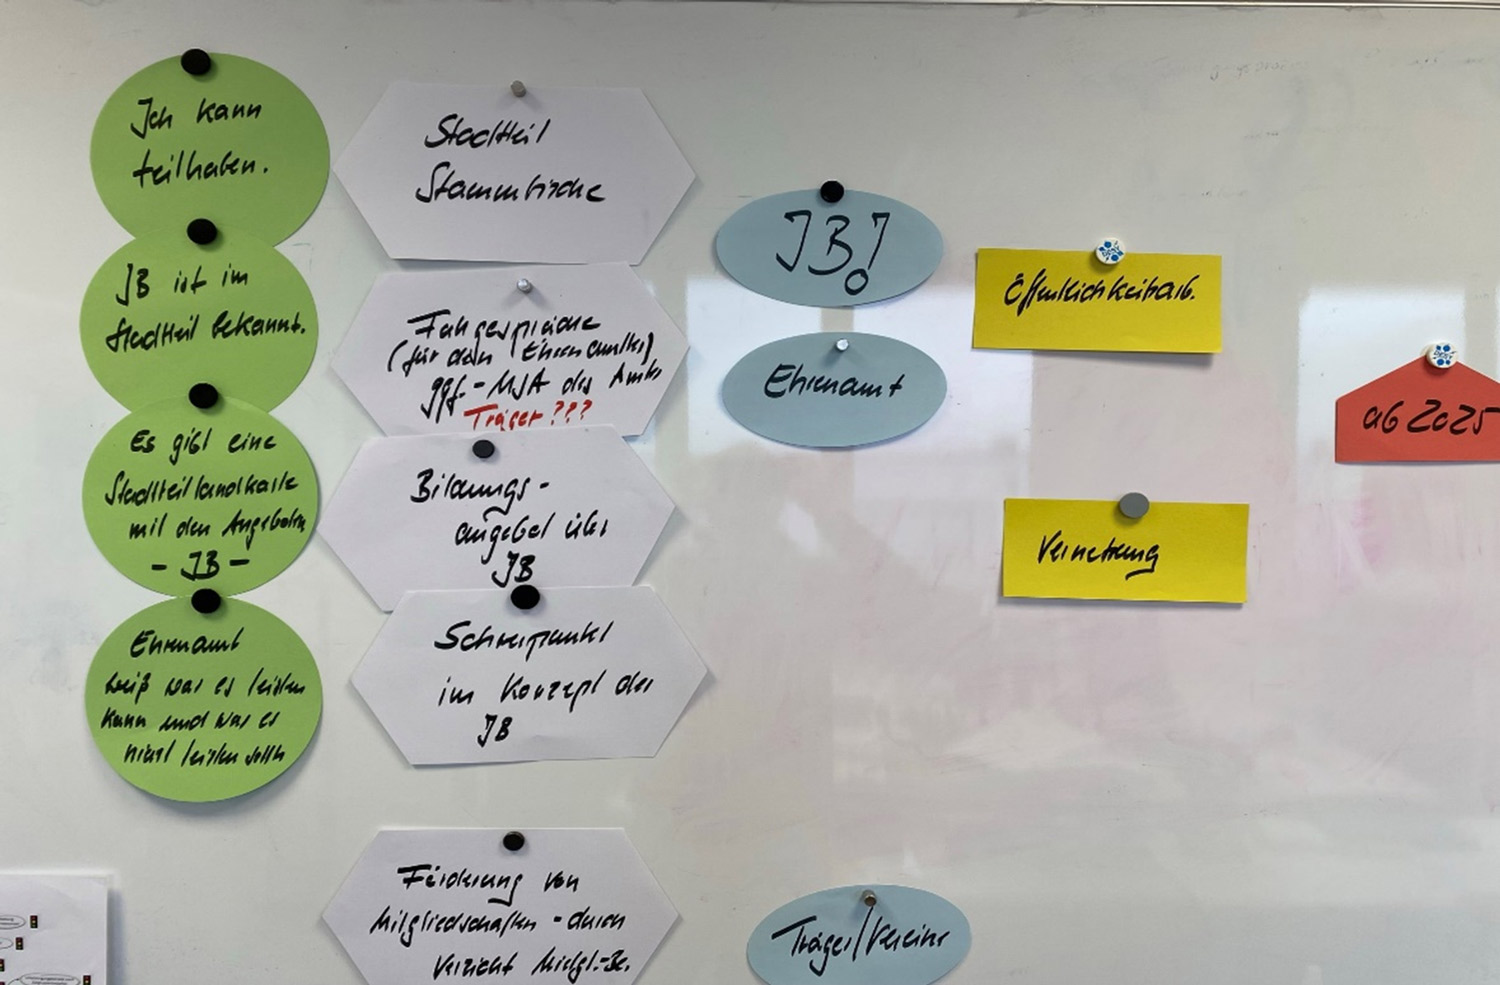 Ich kann
teilhaben.
JB ist im
Stadtteil bekannt.
Es gibt eine
Stadtteillandkarte
mit den Angeboten
- JB -
Ehrenamt
weiß was es leisten
kann und was es
nicht leisten sollte
Stadtteil
Stammtische
(für den Ehrenamtler)
ggf. - MJA des Amtes
Träger ???
Bildungs-
angebot über
JB
Schwerpunkt
im Konzept der
JB
Förderung von
Mitgliedschaften - durch
Verzicht Mitgl.-Be.
JB!
Ehrenamt
Träger/Vereine
Öffentlichkeitsarb.
Vernetzung
ab 2025